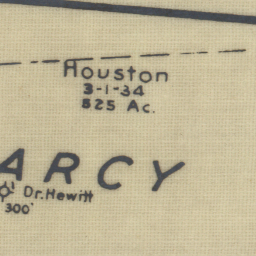 Houston
3-1-34
825 Ac.
ARCY
1 Dr. Hewitt
300'